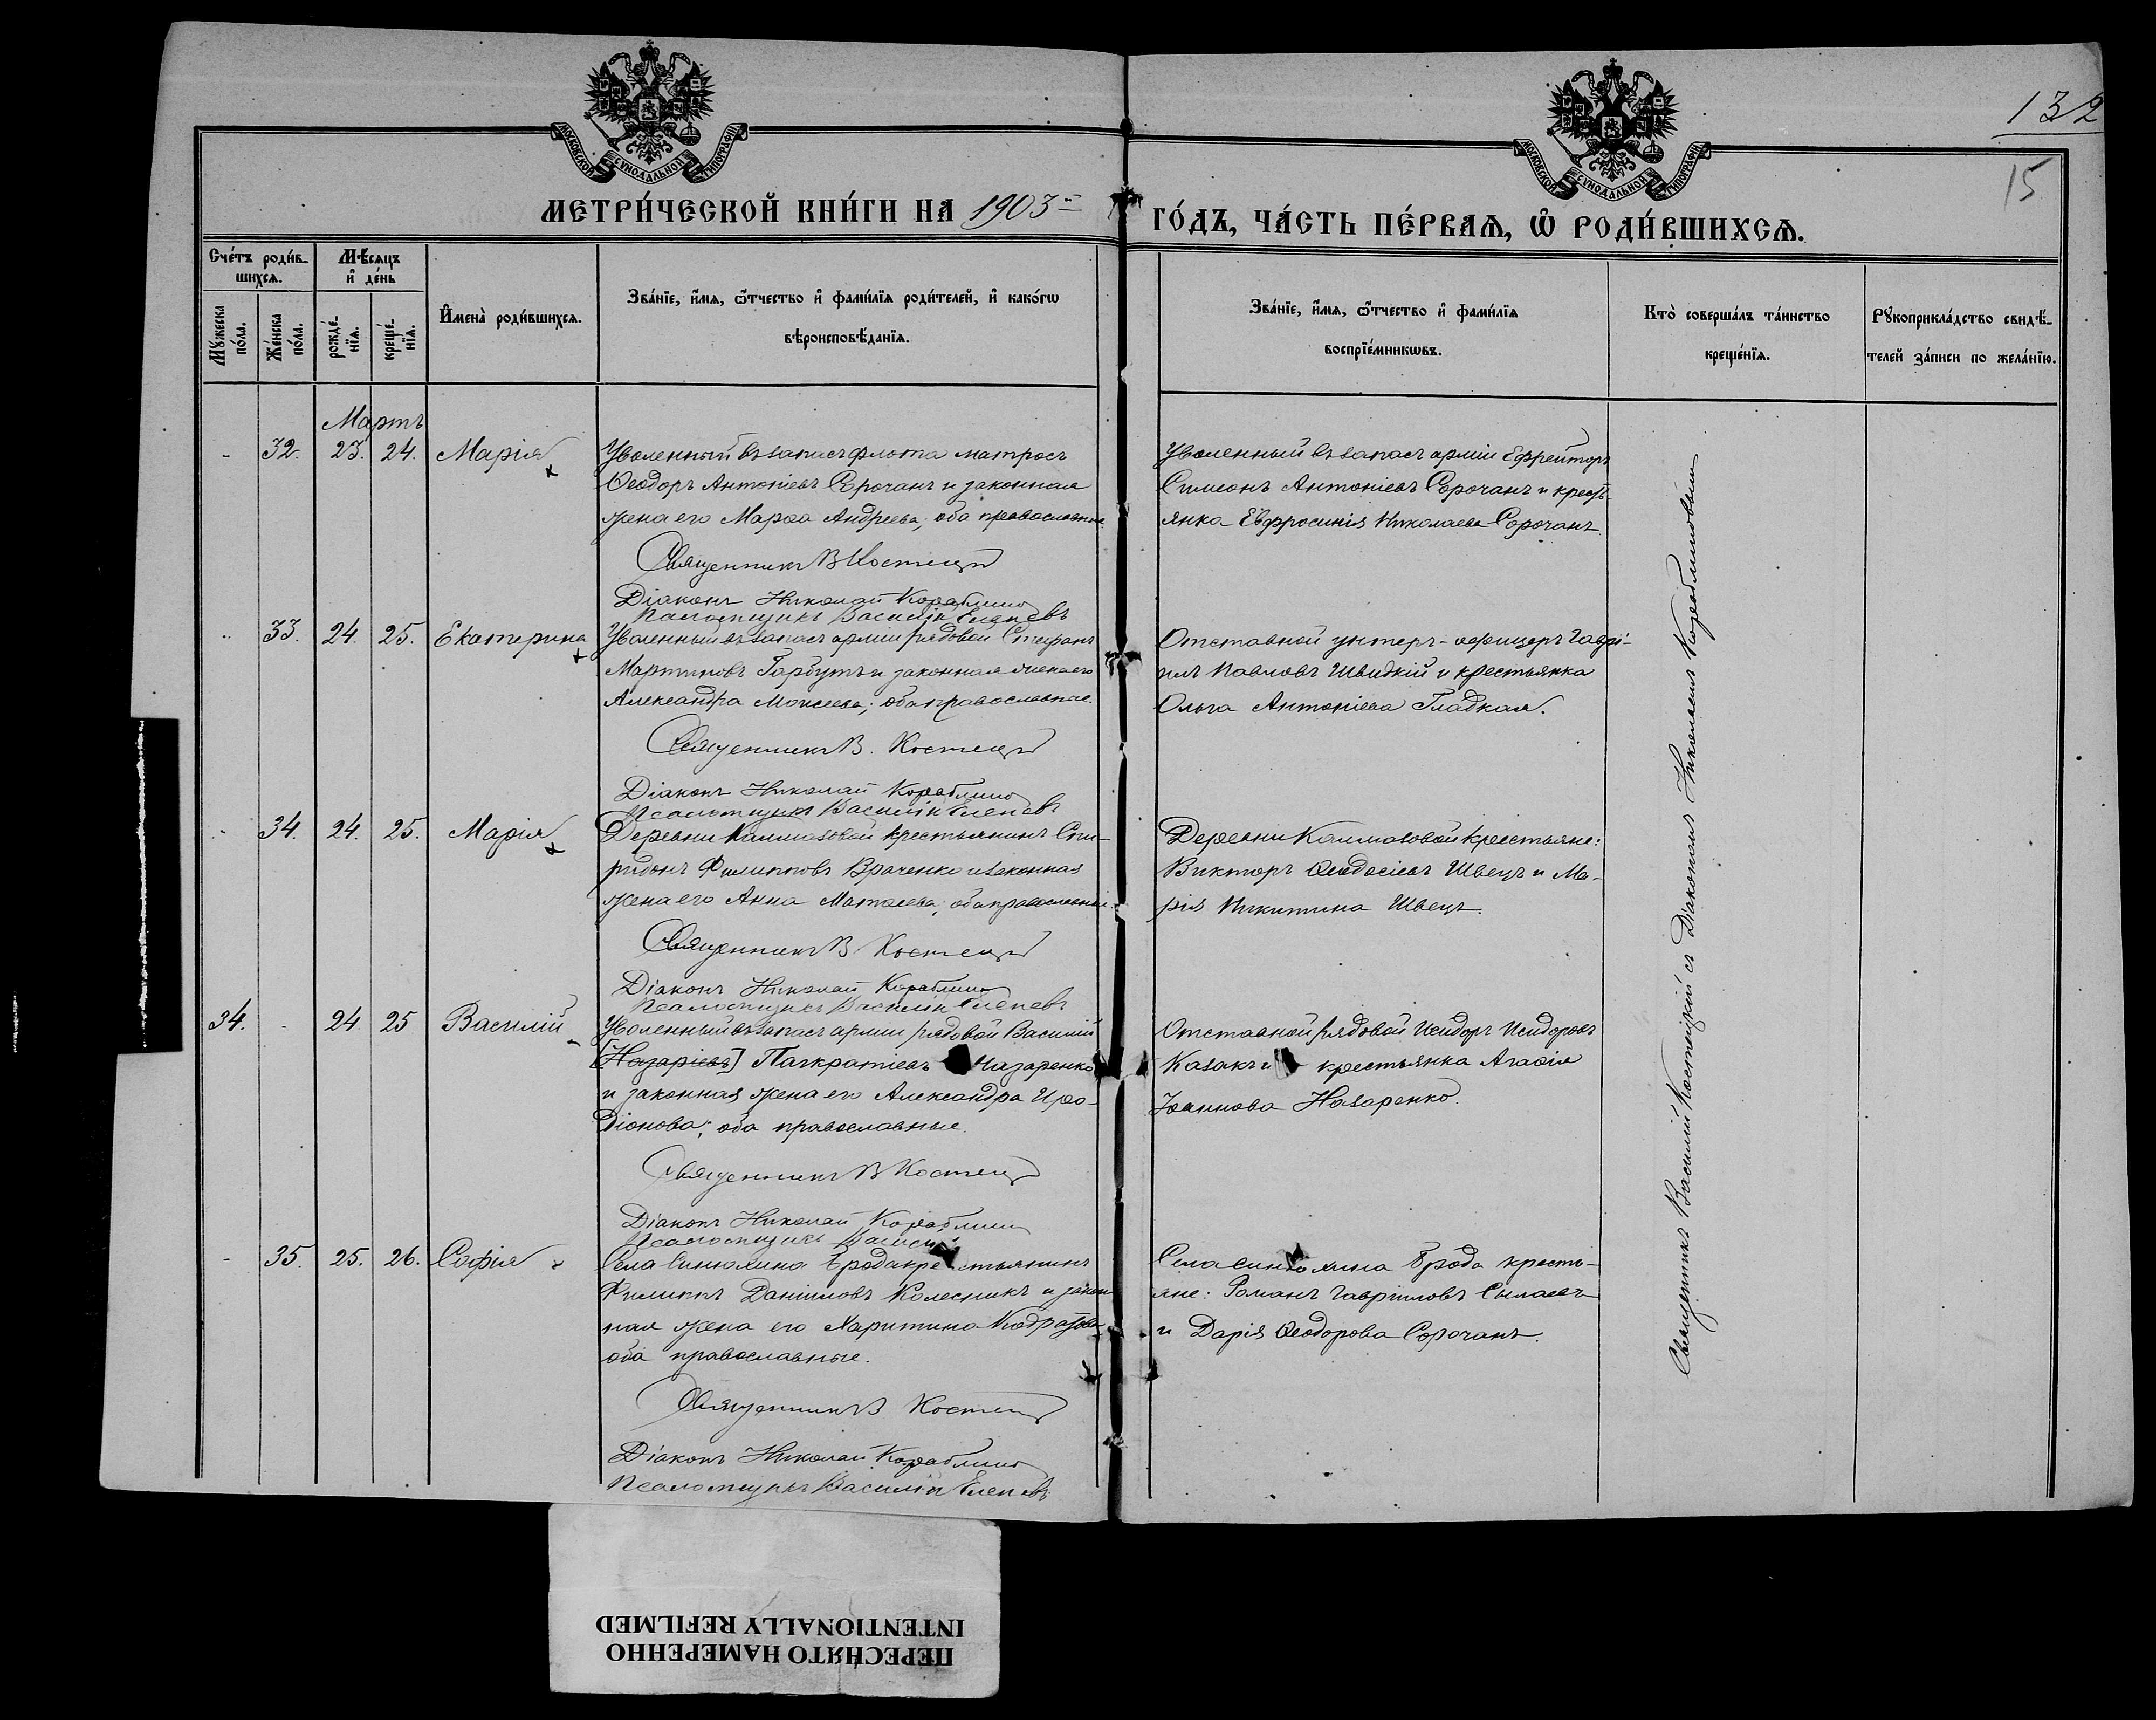 132
15
МОСКОВСКОЙ СѴНОДАЛЬНОЙ ТИПОГРАФІИ
МОСКОВСКОЙ СѴНОДАЛЬНОЙ ТИПОГРАФІИ
МЕТРИ́ЧЕСКОЙ КНИ́ГИ НА 1903
ГО́ДЪ, ЧА́СТЬ ПЕ́РВАѦ, Ѽ РОДИ́ВШИХСѦ.
Сче́тъ роди́в-
шихсѧ.
Мѣ́сѧцъ
и҆ де́нь
Мꙋ́жеска
по́ла.
Же́нска
по́ла.
рожде́-
нїѧ.
креще́-
нїѧ.
И҆мена̀ роди́вшихсѧ.
Зва́нїе, и҆́мѧ, ѻ҆́тчество и҆ фами́лїѧ роди́телей, и҆ како́гѡ
вѣроисповѣ́данїѧ.
Зва́нїе, и҆́мѧ, ѻ҆́тчество и҆ фами́лїѧ
воспрїе́мникѡвъ.
Кто̀ соверша́лъ та́инство
креще́нїѧ.
Рꙋкоприкла́дство свидѣ́-
телей за́писи по жела́нїю.
Мартъ
32. 23. 24. Марія
Уволенный въ запасъ флота матросъ
Ѳеодоръ Антоніевъ Сорочанъ и законная
жена его Марѳа Андреева; оба православные.
Священникъ В Костецкій
Діаконъ Николай Кораблино
Псаломщикъ Василій Елепевъ
Уволенный въ запасъ арміи Ефрейторъ
Симеонъ Антоніевъ Сорочанъ и кресть-
янка Евфросинія Николаева Сорочанъ.
33. 24. 25. Екатерина
Уволенный въ запасъ арміи рядовой Стефанъ
Мартиновъ Гарбузъ и законная жена его
Александра Моисеева; оба православные.
Священникъ В. Костецкій
Діаконъ Николай Кораблино
Псаломщикъ Василій Елепевъ
Отставной унтеръ-офицеръ Гаврі-
илъ Павловъ Швидкій и крестьянка
Ольга Антоніева Гладкая.
34. 24. 25. Марія
Деревни Калмазовой крестьянинъ Спи-
ридонъ Филипповъ Враченко и законная
жена его Анна Матѳеева; оба православные.
Священникъ В Костецкій
Діаконъ Николай Кораблино
Псаломщикъ Василій Елепевъ
Деревни Калмазовой крестьяне:
Викторъ Ѳеодосіевъ Швецъ и Ма-
рія Никитина Швецъ.
34. 24 25 Василій
Уволенный въ запасъ арміи рядовой Василій
[Назаріевъ] Панкратіевъ Назаренко
и законная жена его Александра Иро-
діонова; оба православные.
Священникъ В Костецкій
Діаконъ Николай Кораблино
Псаломщикъ Василій
Отставной рядовой Исидоръ Исидоровъ
Казакъ и крестьянка Агаѳія
Іоаннова Назаренко.
35. 25. 26. Софія
Села Синюхина Брода крестьянинъ
Филиппъ Даніиловъ Колесникъ и закон-
ная жена его Харитина Кодратова
оба православные.
Священникъ В Костецкій
Діаконъ Николай Кораблино
Псаломщикъ Василій Елепевъ
Села Синюхина Брода кресть-
яне: Романъ Гавріиловъ Сылаевъ
и Дарія Ѳеодорова Сорочанъ.
Священникъ Василій Костецкій съ Діакономъ Николаемъ Кораблиновымъ
ПЕРЕСНЯТО НАМЕРЕННО
INTENTIONALLY REFILMED